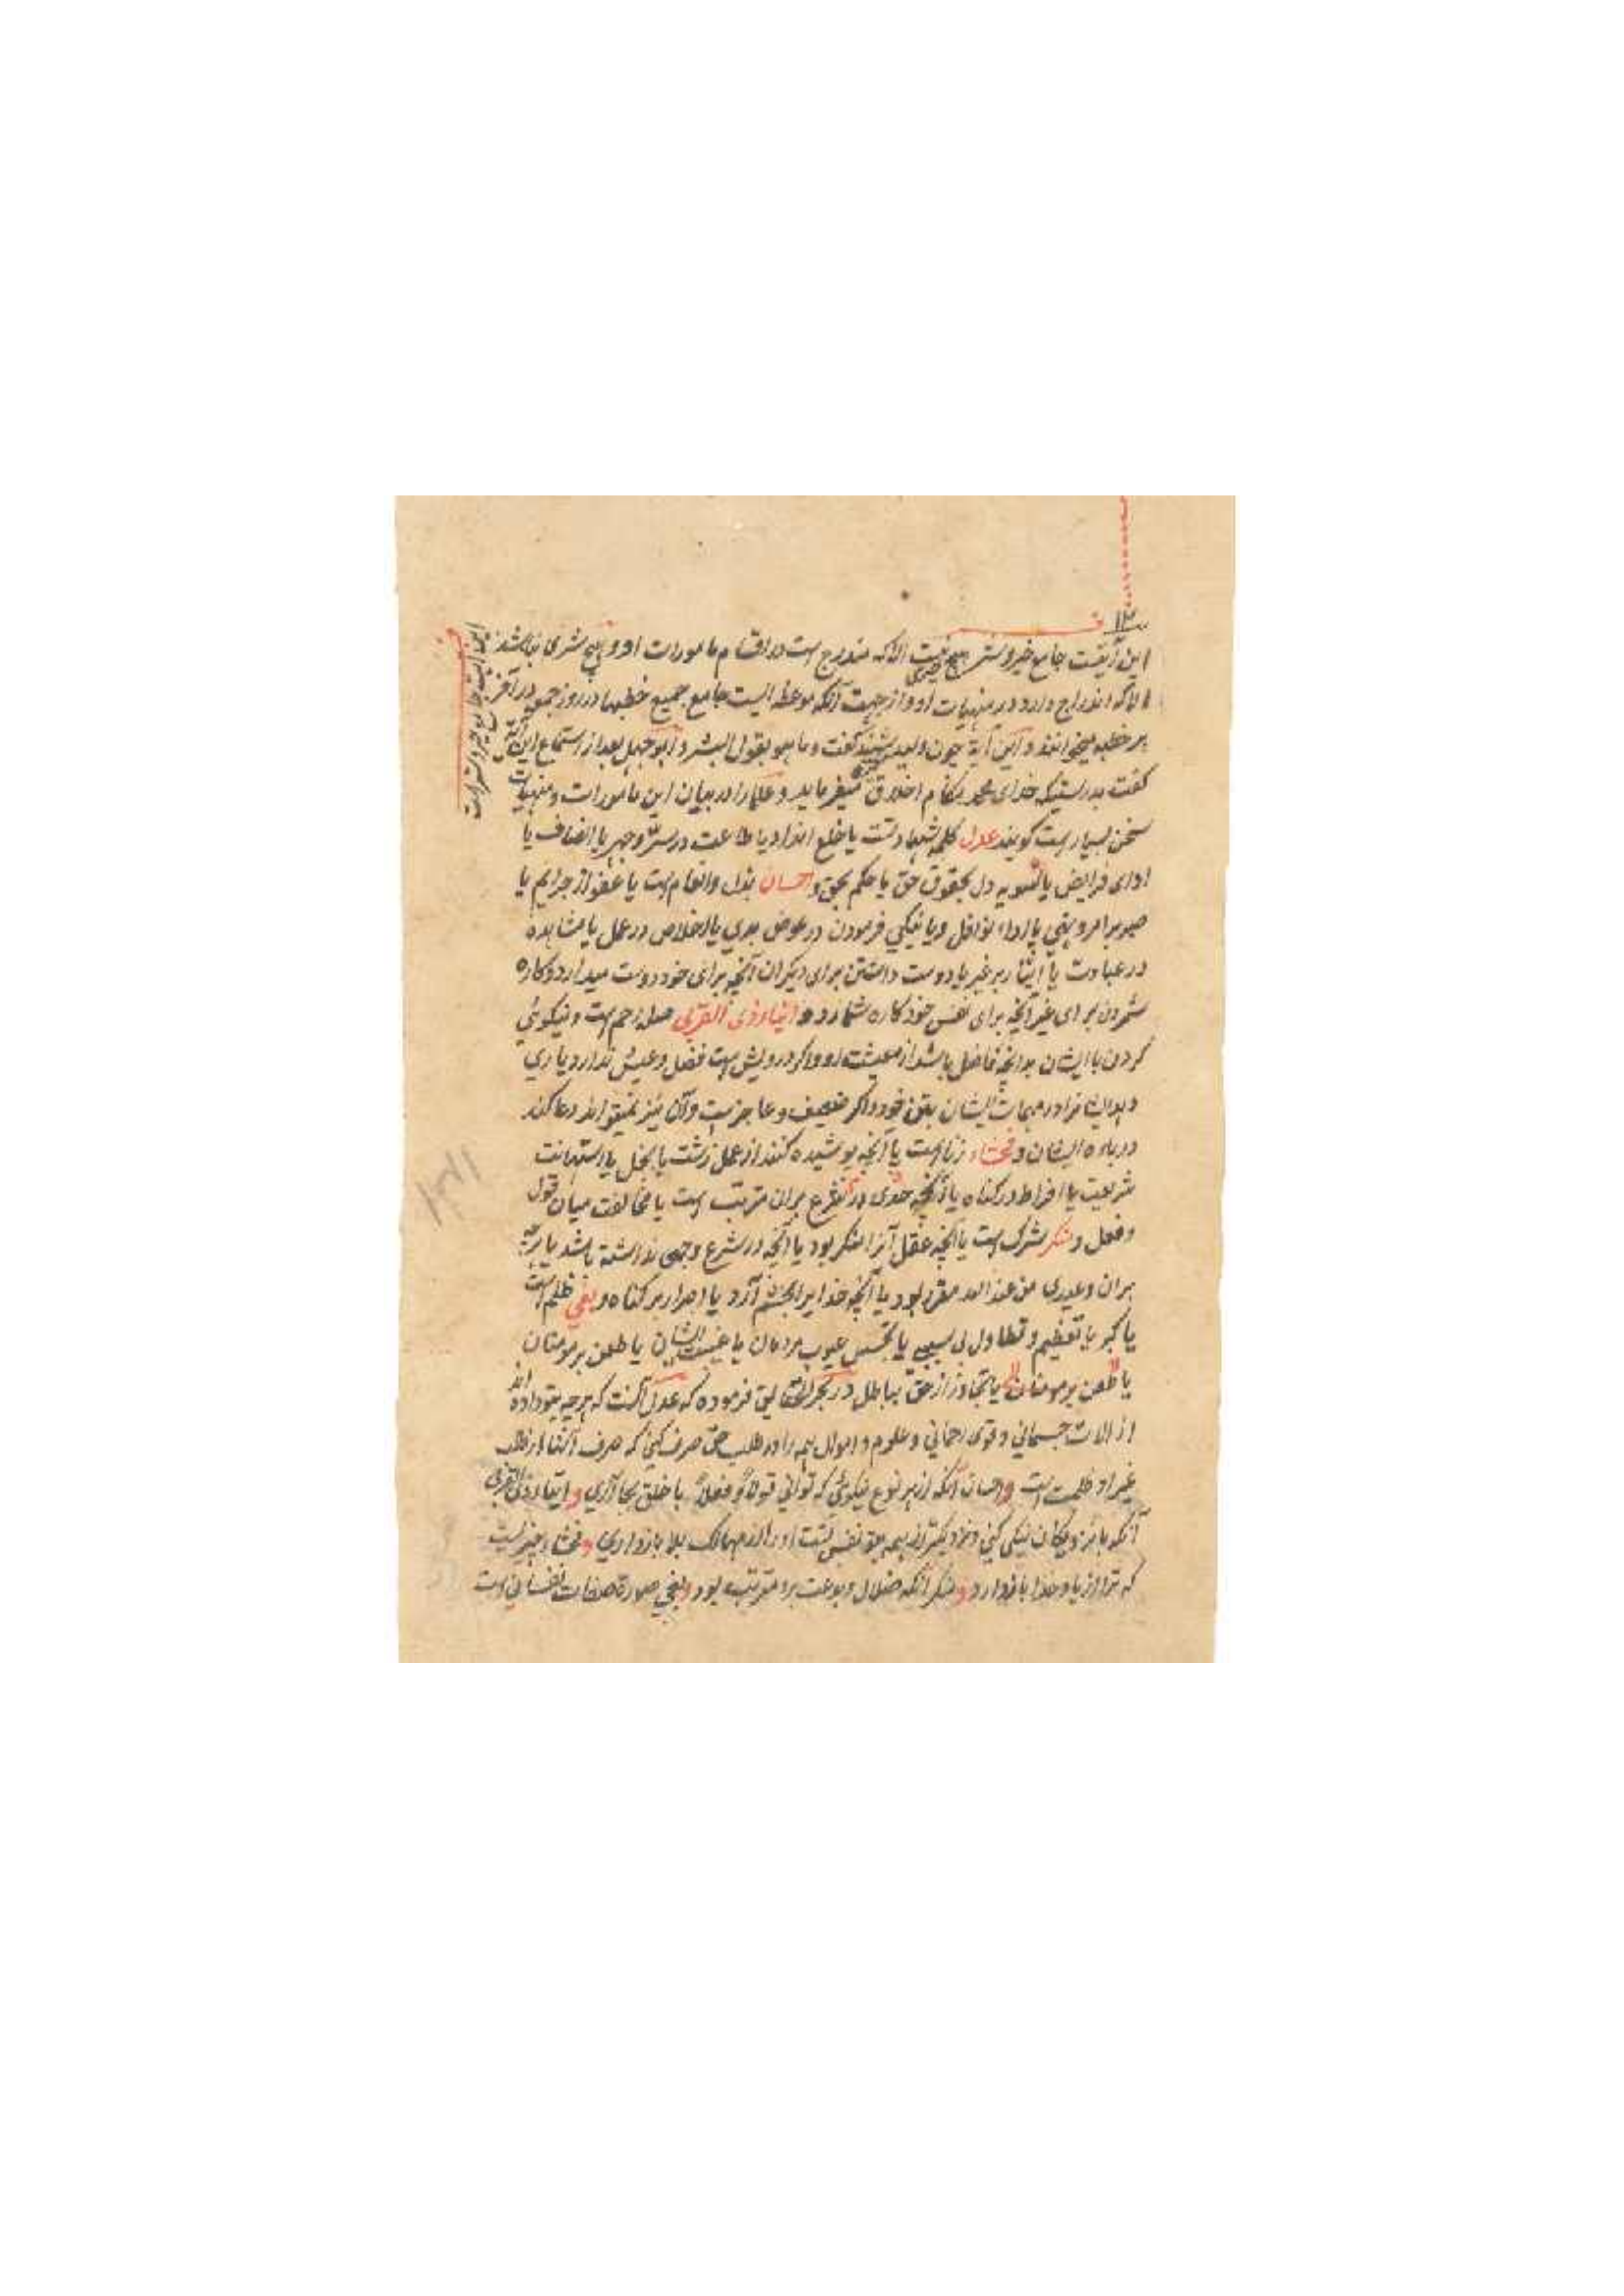 این آیتست جامع خیر و شر هیچ خیری نیست الا که مندرج است در اقسام مامورات او و هیچ شری نباشد
الا که اندراج دارد در منهیات او و از جهت آنکه موعظه ایست جامع جمیع خطبها در روز جمعه در آخر
هر خطبه میخوانند و این آیة چون ولید شنید گفت و ما هو بقول البشر و ابو جهل بعد از استماع این آیة
گفت بدرستیکه خدای محمد بمکارم اخلاق میفرماید و علما را در بیان این مامورات و منهیات
سخن بسیارست گویند عدل کلمه شهادتست یا خلع انداد یا طاعت در سر و جهر یا انصاف یا
ادای فرایض یا تسویه دل بحقوق حق یا حکم بحق و احسان بذل و انعام است یا عفو از جرایم یا
صبر بر امر و نهی یا اداء نوافل و یا نیکی فرمودن در عوض بدی یا اخلاص در عمل یا مشاهده
در عبادت یا ایثار بر غیر یا دوست داشتن برای دیگران آنچه برای خود دوست میدارد و کاره
شمردن برای غیر آنچه برای نفس خود کاره شمارد و ایتاء ذی القربی صله رحم است و نیکوئی
کردن با ایشان بدانچه فاضل باشد از معیشت او و اگر درویش است فضل و عیش ندارد یاری
دهد ایشانرا در مهمات ایشان بتن خود و اگر ضعیف و عاجزست و آن نیز نمیتواند دعا کند
درباره ایشان و فحشاء زنا است یا آنچه پوشیده کنند از عمل زشت یا بخل یا استهانت
شریعت یا افراط در گناه یا آنچه حدی در شرع بران مترتب است یا مخالفت میان قول
و فعل و منکر شرک است یا آنچه عقل آنرا منکر بود یا آنچه در شرع وجهی نداشته باشد یا هر چه
بران وعیدی من عند الله مقرر بود یا آنچه خدایرا بخشم آرد یا اصرار بر گناه و بغی ظلم است
یا کبر یا تعظیم و تطاول بی سببی یا تجسس عیوب مردمان یا غیبت ایشان یا طعن بر مومنان
یا طعن بر مومنان یا تجاوز از حق بباطل در بحر الحقایق فرموده که عدل آنست که هرچه بتو داده اند
از الات جسمانی و قوی و علوم و اموال همه را در طلب حق صرف کنی که صرف آنها در طلب
غیر او ظلمت است و احسان آنکه از هر نوع نیکوئی که توانی قولا و فعلا با خلق بجا آری و ایتاء ذی القربی
آنکه با نزدیکان نیکی کنی و نزدیکتر از همه بتو نفس تست او را از مهالک بلا باز داری و فحشاء چیزیست
که ترا از یاد خدا باز دارد و منکر آنکه ضلال و بدعت برو مترتب بود و بغی صورة صفات نفسانی است